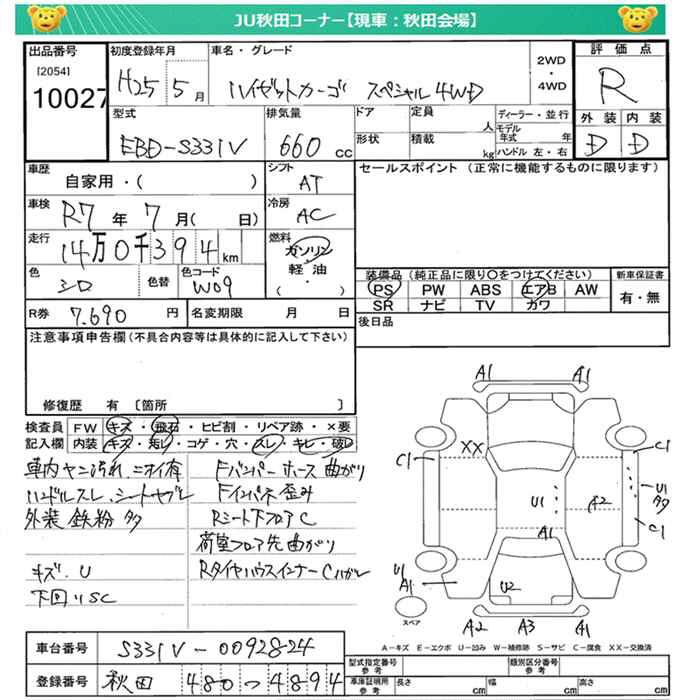 JU秋田コーナー【現車:秋田会場】
出品番号 [2054] 10027
初度登録年月 H25 5月
車名・グレード ハイゼットカーゴ スペシャル 4WD
2WD・4WD
評価点 R
外装 D 内装 D
型式 EBD-S331V
排気量 660cc
ドア 形状
定員 人
積載 kg
ディーラー・並行
モデル年式 年
ハンドル 左・右
車歴 自家用・( )
シフト AT
セールスポイント (正常に機能するものに限ります)
車検 R7年 7月( 日)
冷房 AC
走行 14万0千394km
燃料 ガソリン 軽油 ( )
色 シロ 色替
色コード W09
装備品(純正品に限り〇をつけてください)
PS PW ABS エアB AW
SR ナビ TV カワ
新車保証書 有・無
R券 7,690円
名変期限 月 日
後日品
注意事項申告欄(不具合内容等は具体的に記入して下さい)
修復歴 有 〔箇所 〕
検査員記入欄
FW キズ・飛石・ヒビ割・リペア跡・×要
内装 キズ・汚レ・コゲ・穴・スレ・キレ・破レ
車内ヤニ汚れ、ニオイ有
ハンドルスレ、シートヤブレ
外装 鉄粉 多
キズ、U
下回りSC
Fバンパーホース曲がり
Fインパネ歪み
Rシート下フロアC
荷室フロア先曲がり
RタイヤハウスインナーCハガレ
A1 A1
XX
C1 C1
U1 A2 U1 多
A1 C1
U1 A1
U2
A2 A3 A1
スペア
A-キズ E-エクボ U-凹み W-補修跡 S-サビ C-腐食 XX-交換済
車台番号 S331V-0092824
登録番号 秋田 480つ4894
型式指定番号 参考
類別区分番号 参考
車庫証明用 参考
長さ cm 幅 cm 高さ cm